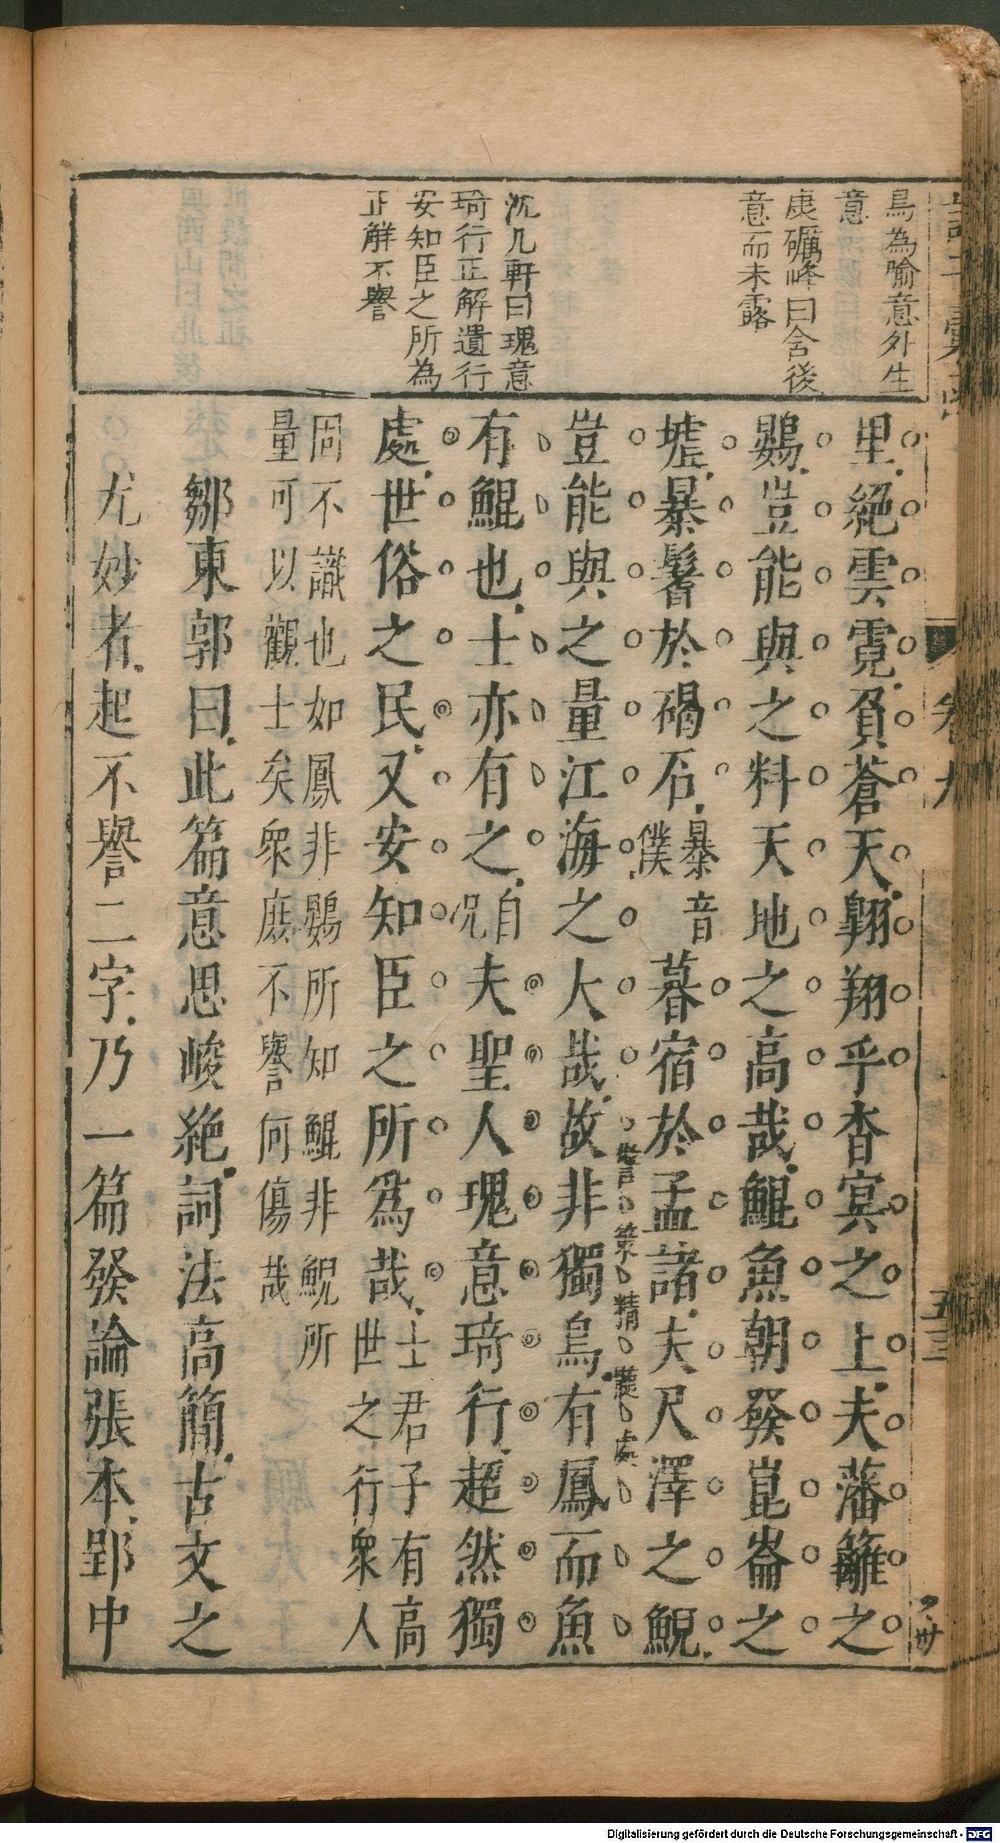 鳥為喻意外生
意
庚礪峰曰含後
意而未露
沈几軒曰瑰意
琦行正解遺行
安知臣之所為
正解不譽
里絕雲霓負蒼天翺翔乎杳冥之上夫藩籬之
鷃豈能與之料天地之高哉鯤魚朝發崑崙之
墟暴鬐於碣石暴音僕暮宿於孟諸夫尺澤之鯢
豈能與之量江海之大哉故非獨鳥有鳳而魚
警策精凝處
有鯤也士亦有之自况夫聖人瑰意琦行超然獨
處世俗之民又安知臣之所為哉士君子有高世之行衆人
固不識也如鳳非鷃所知鯤非鯢所
量可以觀士矣衆庶不譽何傷哉
鄒東郭曰此篇意思峻絕詞法高簡古文之
尤妙者起不譽二字乃一篇發論張本郢中
卷九
五三
Digitalisierung gefördert durch die Deutsche Forschungsgemeinschaft - DFG